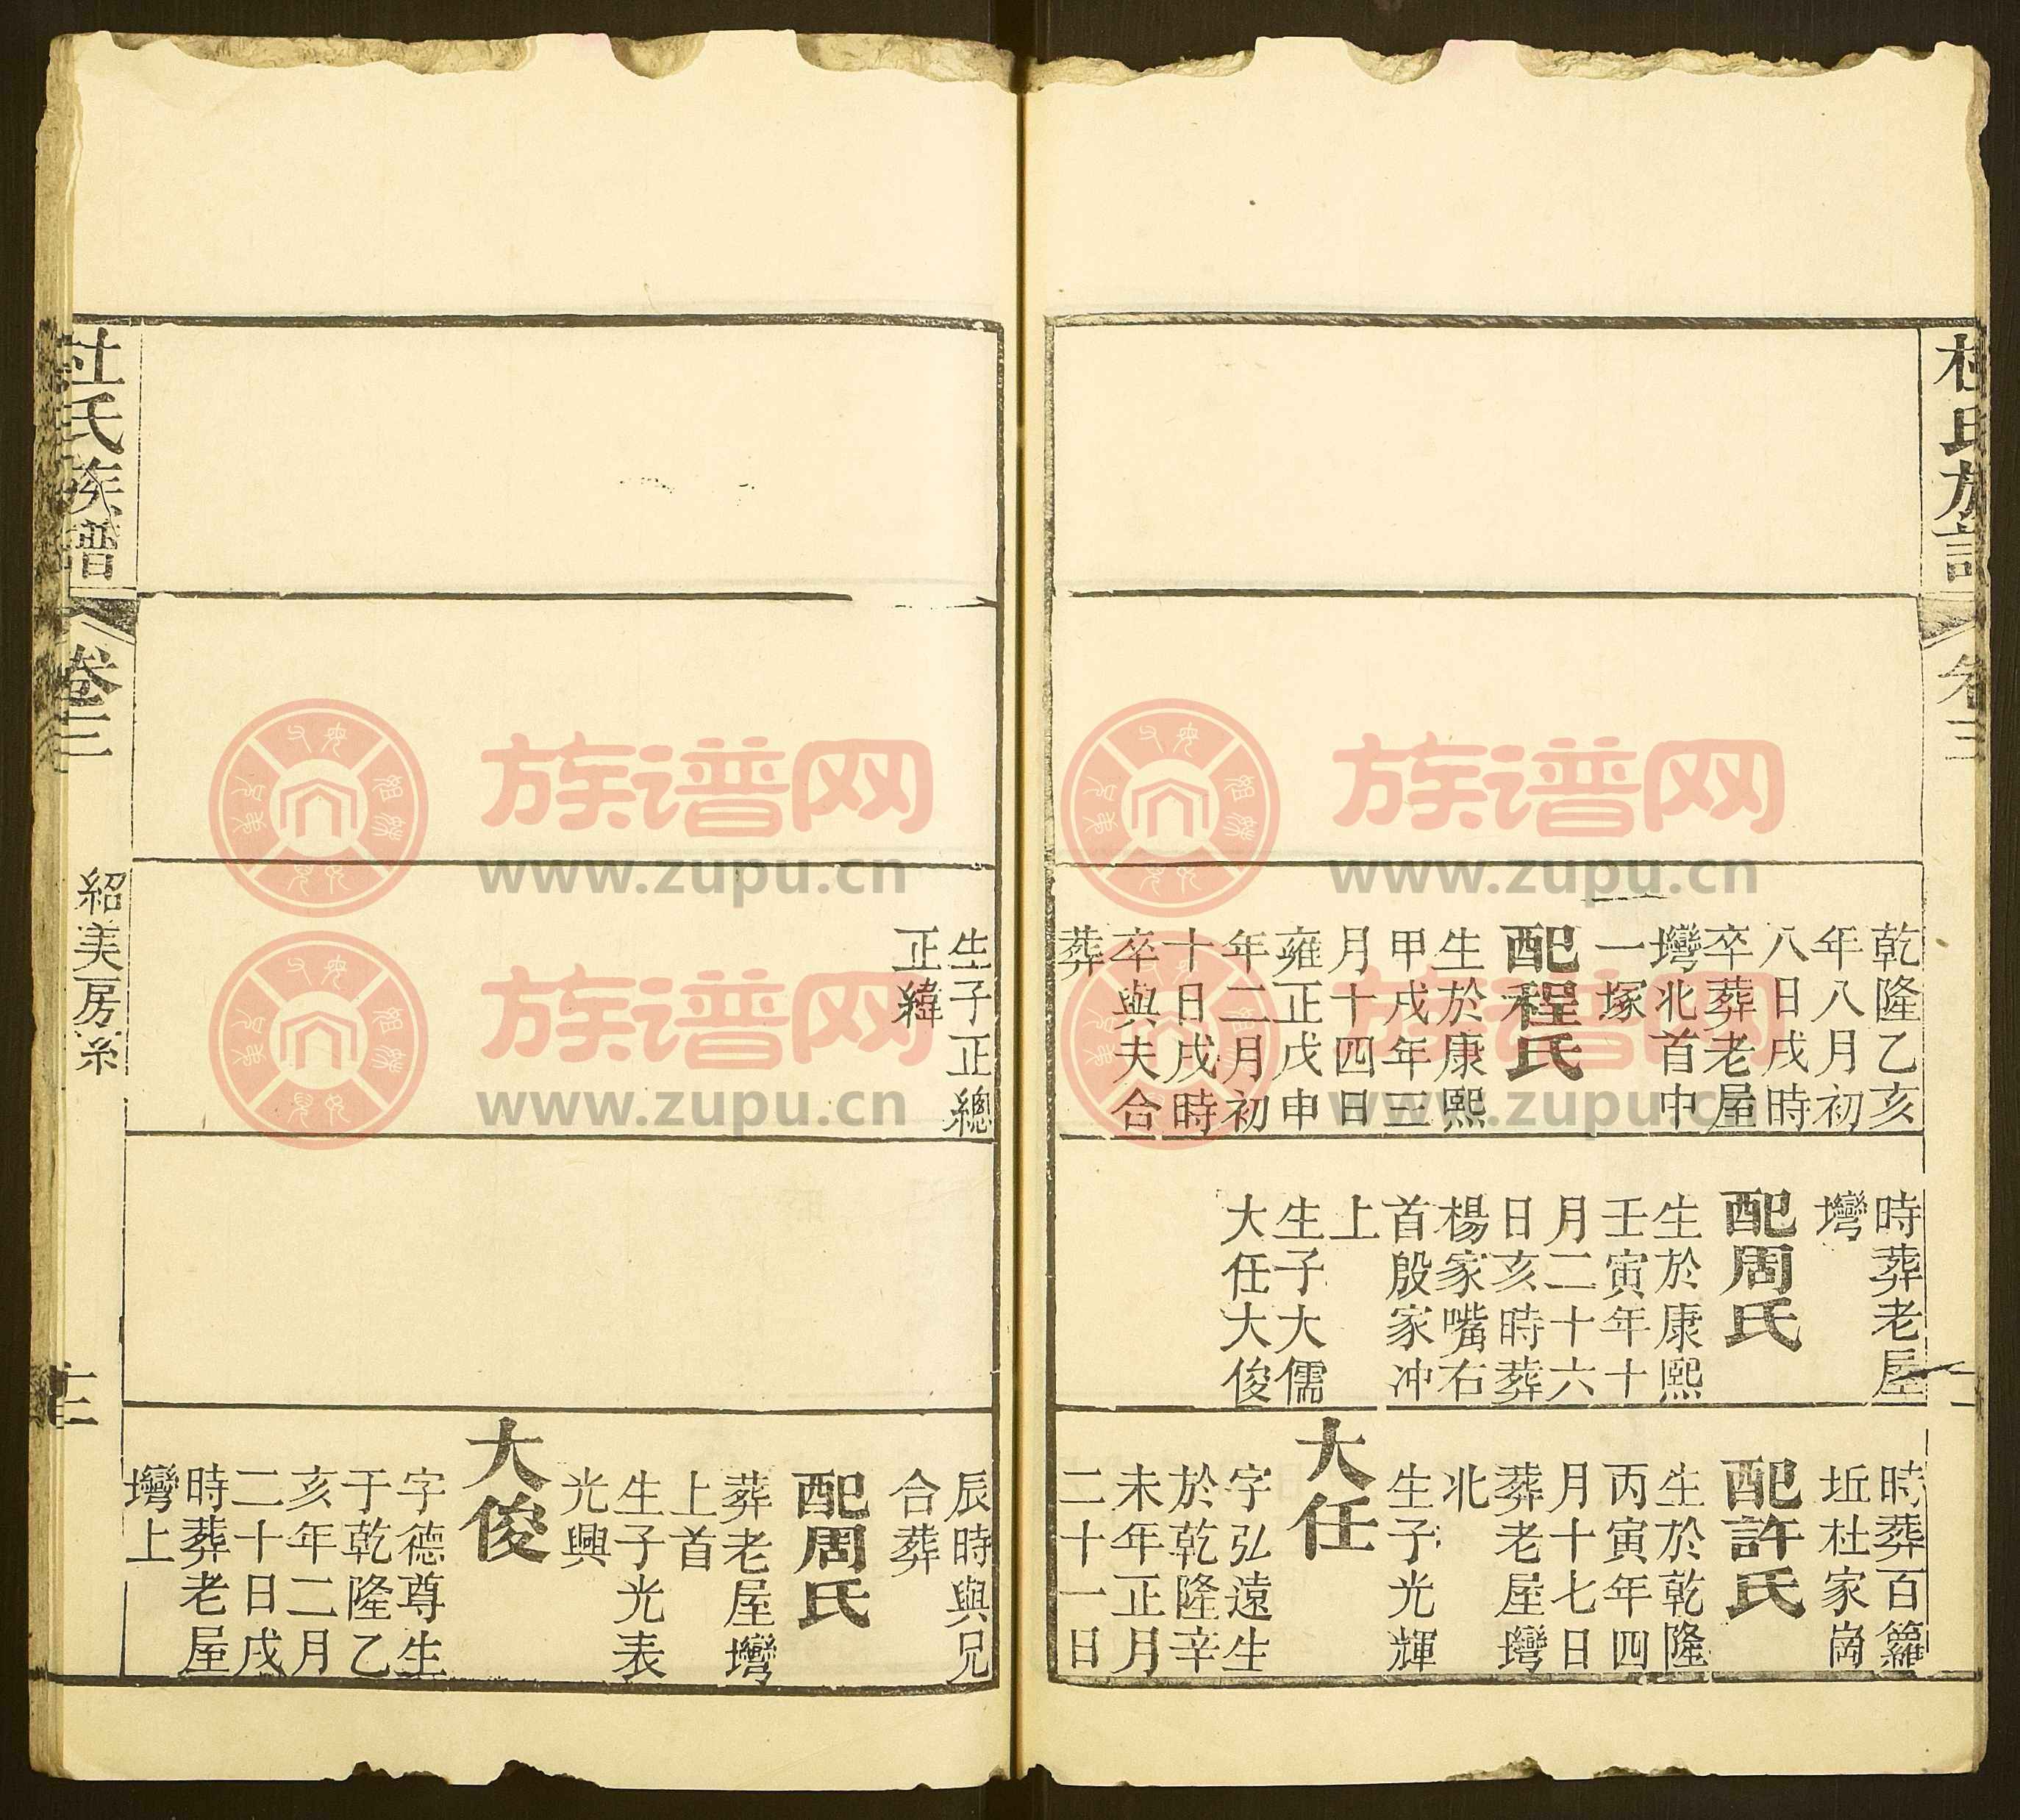 杜氏族譜
卷三
乾隆乙亥
年八月初
八日戌時
卒葬老屋
壪北首中
一塚
配程氏
生於康熙
甲戌年三
月十四日
雍正戊申
年二月初
十日戌時
卒與夫合
葬
時葬老屋
壪
配周氏
生於康熙
壬寅年十
月二十六
日亥時葬
楊家嘴右
首殷家冲
上
生子大儒
大任大俊
時葬百籮
坵杜家崗
配許氏
生於乾隆
丙寅年四
月十七日
葬老屋壪
北
生子光輝
大任
字弘遠生
於乾隆辛
未年正月
二十一日
生子正總
正緯
辰時與兄
合葬
配周氏
葬老屋壪
上首
生子光表
光興
大俊
字德尊生
于乾隆乙
亥年二月
二十日戌
時葬老屋
壪上
杜氏族譜
卷三
紹美房系
十三
族谱网
www.zupu.cn
族谱网
www.zupu.cn
族谱网
www.zupu.cn
族谱网
www.zupu.cn